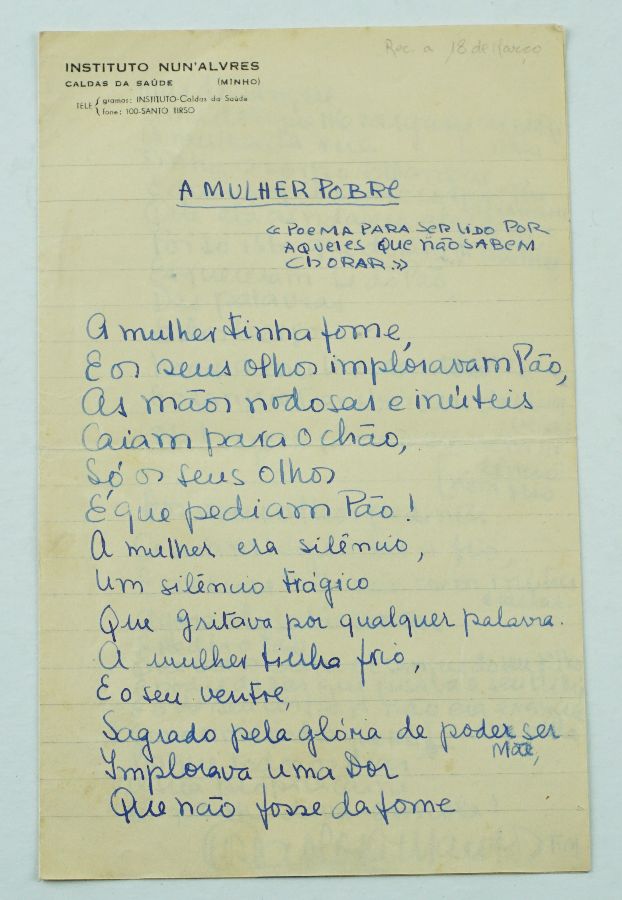 Rec. a 18 de Março
INSTITUTO NUN'ALVRES
CALDAS DA SAÚDE (MINHO)
TELE { gramas: INSTITUTO-Caldas da Saúde
fone: 100-SANTO TIRSO
A MULHER POBRE
«POEMA PARA SER LIDO POR
AQUELES QUE NÃO SABEM
CHORAR»
A mulher tinha fome,
E os seus olhos imploravam Pão,
As mãos nodosas e inúteis
Caiam para o chão,
Só os seus olhos
É que pediam Pão!
A mulher era silêncio,
Um silêncio trágico
Que gritava por qualquer palavra.
A mulher tinha frio,
E o seu ventre,
Sagrado pela glória de poder ser
Mãe,
Implorava uma Dor
Que não fosse da fome